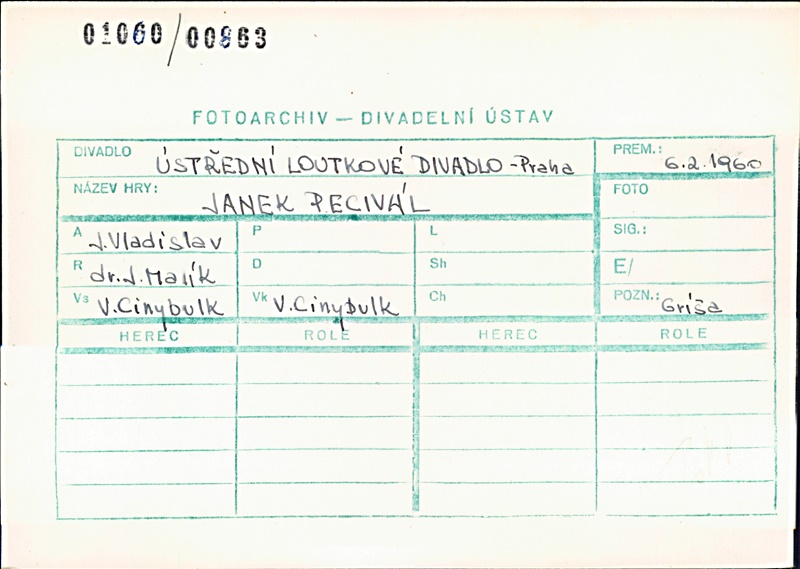 01060/00863
FOTOARCHIV — DIVADELNÍ ÚSTAV
DIVADLO ÚSTŘEDNÍ LOUTKOVÉ DIVADLO - Praha PREM.: 6.2.1960
NÁZEV HRY: JANEK PECIVÁL FOTO
A J. Vladislav P L SIG.:
R dr. J. Malík D Sh E/
Vs V. Cinybulk Vk V. Cinybulk Ch POZN.: Gríša
HEREC ROLE HEREC ROLE